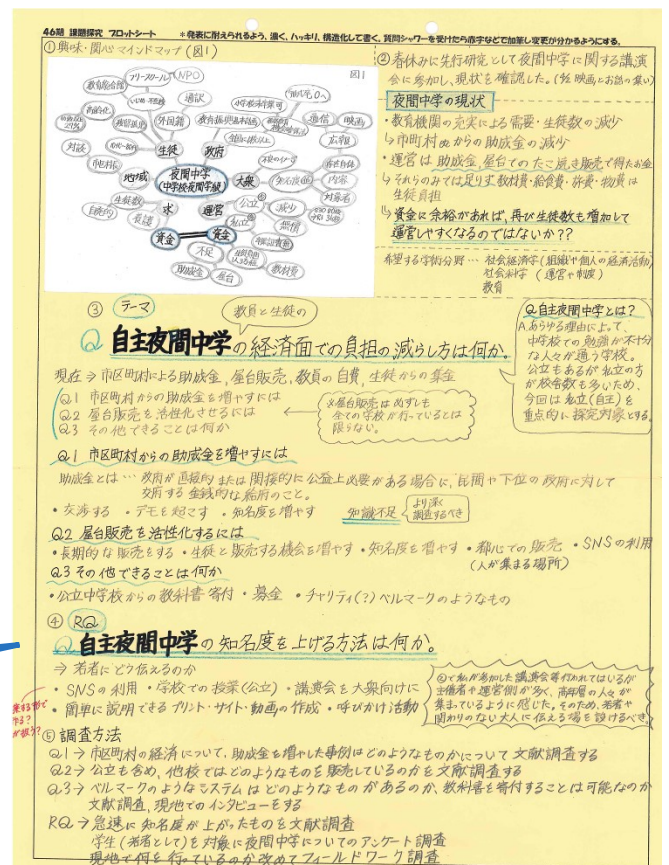 46期 課題探究 プロットシート ＊発表に耐えられるよう、濃く、ハッキリ、構造化して書く。質問シャワーを受けたら赤字などで加筆し変更が分かるようにする。
①興味・関心マインドマップ(図1)
図1
フリースクール
NPO
教育機会
通訳
外国籍
生徒
政府
広報
映画
地域
夜間中学
(中学校夜間学級)
大衆
知名度
内容
対象者
市町村
対話
生徒数
求
運営
公立
減少
私立
無償
資金
資金
不足
助成金
屋台
教材費
②春休みに先行研究として夜間中学に関する講演
会に参加し、現状を確認した。(映画とお話の集い)
夜間中学の現状
・教育機関の充実による需要・生徒数の減少
↳市町村からの助成金の減少
・運営は助成金、屋台でのたこ焼き販売で得たお金
↳それらのみでは足りず教材費・給食費・旅費・物費は
生徒負担
↳資金に余裕があれば、再び生徒数も増加して
運営しやすくなるのではないか??
希望する学術分野… 社会経済学(組織や個人の経済活動)
社会科学 (運営や制度)
教育
③ テーマ
教員と生徒の
Q 自主夜間中学の経済面での負担の減らし方は何か。
Q 自主夜間中学とは?
A.あらゆる理由によって、
中学校での勉強が不十分
な人々が通う学校。
公立もあるが私立の方
が校舎数も多いため、
今回は私立(自主)を
重点的に探究対象とする。
現在→市区町村による助成金、屋台販売、教員の自費、生徒からの集金
Q.1 市区町村からの助成金を増やすには
Q.2 屋台販売を活性化させるには
Q.3 その他できることは何か
※屋台販売は必ずしも
全ての学校が行っているとは
限らない。
Q.1 市区町村からの助成金を増やすには
助成金とは… 政府が直接的または間接的に公益上必要がある場合に、民間や下位の政府に対して
交付する金銭的な給付のこと。
・交渉する ・デモを起こす ・知名度を増やす 知識不足
より深く
調査するべき
Q2 屋台販売を活性化するには
・長期的な販売をする ・生徒と販売する機会を増やす ・知名度を増やす ・都心での販売 ・SNSの利用
(人が集まる場所)
Q.3 その他できることは何か
・公立中学校からの教科書寄付 ・募金 ・チャリティ(?)ベルマークのようなもの
④ RQ
Q 自主夜間中学の知名度を上げる方法は何か。
→若者にどう伝えるのか
・SNSの利用 ・学校での授業(公立) ・講演会を大衆向けに
・簡単に説明できるプリント・サイト・動画の作成 ・呼びかけ活動
②で私が参加した講演会等行われてはいるが
主催者や運営側が多く、高年層の人々が
集まっているように感じた。そのため、若者や
関わりのない大人に伝える場を設けるべき。
⑤調査方法
Q.1→市区町村の経済について、助成金を増やした事例はどのようなものかについて文献調査する
Q.2→公立も含め、他校ではどのようなものを販売しているのかを文献調査する
Q.3→ベルマークのようなシステムはどのようなものがあるのか、教科書を寄付することは可能なのか
文献調査、現地でのインタビューをする
RQ→急速に知名度が上がったものを文献調査
学生(若者として)を対象に夜間中学についてのアンケート調査
現地で何を行っているのか改めてフィールドワーク調査